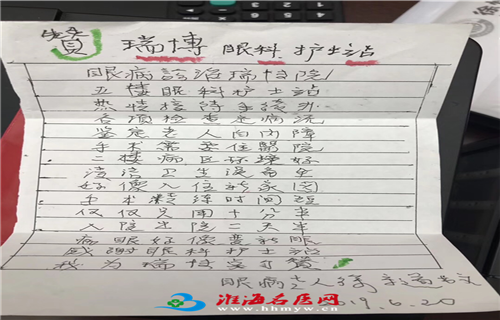 赞 瑞博眼科护士站
眼病诊治瑞博院
五楼眼科护士站
热情接待手续办
各项检查定病况
鉴定老人白内障
手术需要住醫院
二楼病区环境好
清洁卫生没尚
好像入住新家
手术时间
仅仅只用十分半
入院出院二天半
病眼好像变新眼
感谢眼科护士站
我为瑞博点赞
眼病老人
19.6.20
淮海名医网
www.hhmyw.cn